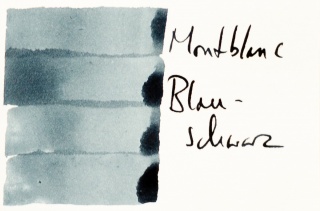 Montblanc
Blau-
schwarz